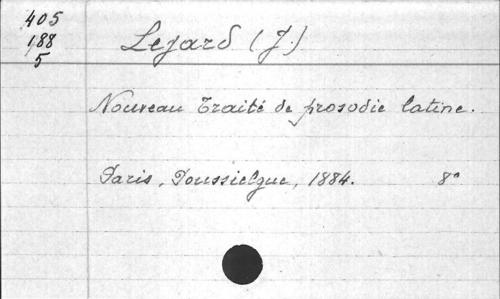 405
188
5
Lejard (J.)
Nouveau Traité de prosodie latine.
Paris, Poussielgue, 1884. 8°